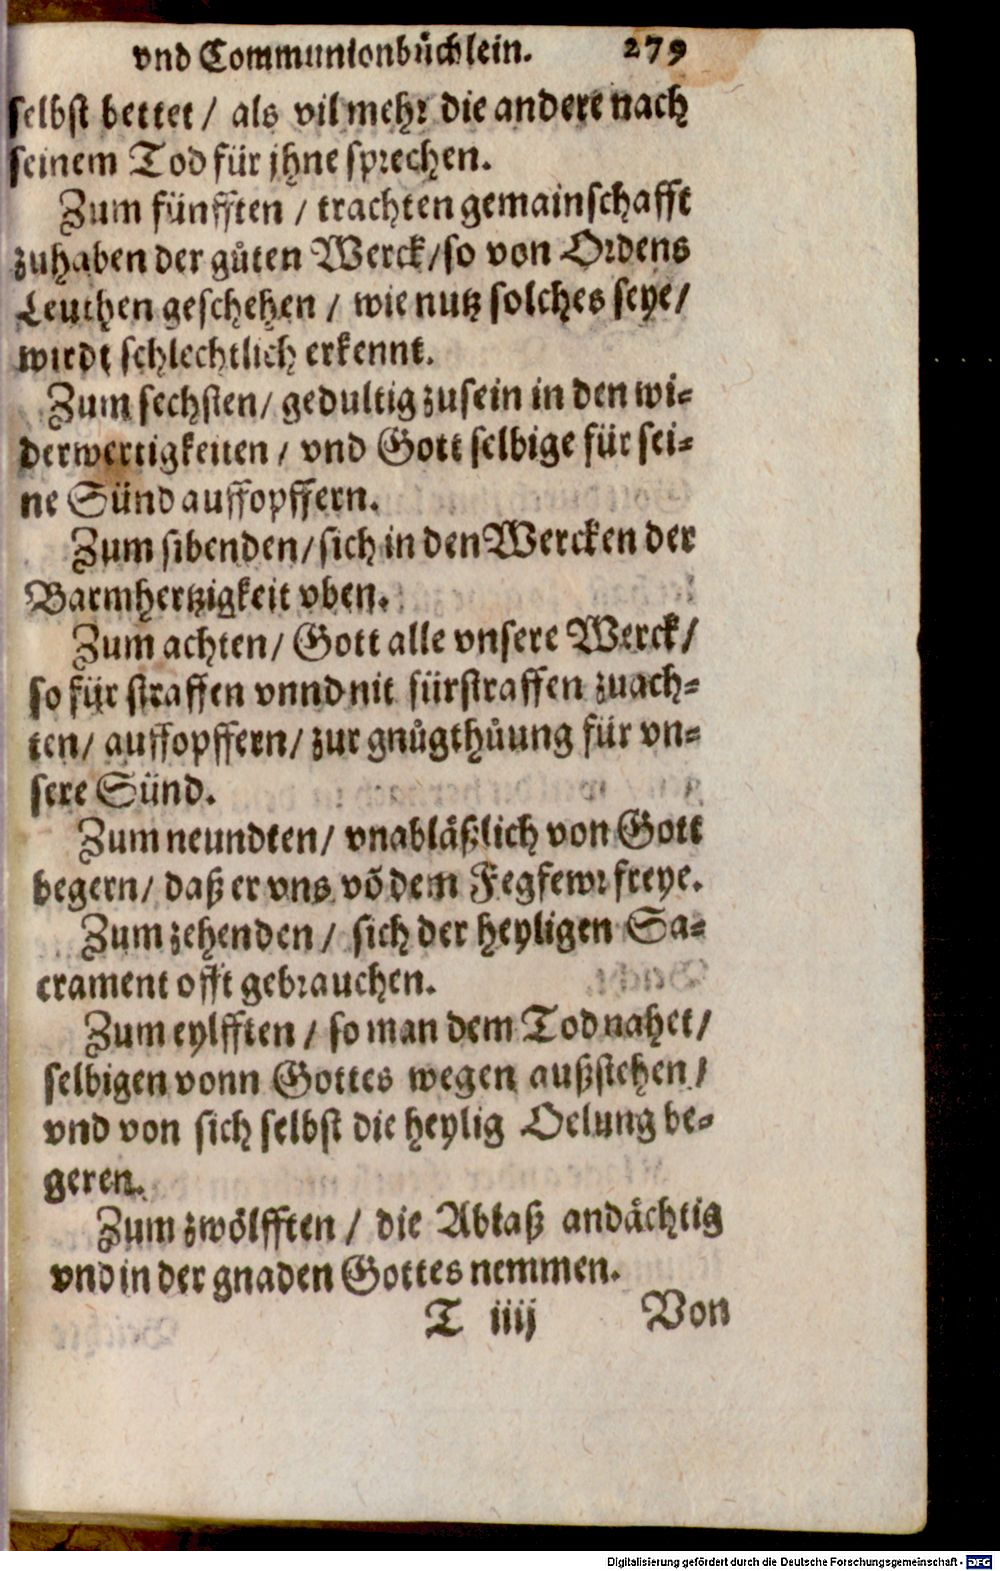 vnd Communionbůchlein. 279
selbst bettet / als vil mehr die andere nach
seinem Tod für jhne sprechen.
Zum fünfften / trachten gemainschafft
zuhaben der gůten Werck / so von Ordens
Leuthen geschehen / wie nutz solches seye /
wirdt schlechtlich erkennt.
Zum sechsten / gedultig zusein in den wi-
derwertigkeiten / vnd Gott selbige für sei-
ne Sünd auffopffern.
Zum sibenden / sich in den Wercken der
Barmhertzigkeit vben.
Zum achten / Gott alle vnsere Werck /
so für straffen vnnd nit fürstraffen zuach-
ten / auffopffern / zur gnůgthůung für vn-
sere Sünd.
Zum neundten / vnabläßlich von Gott
begern / daß er vns võ dem Fegfewr freye.
Zum zehenden / sich der heyligen Sa-
crament offt gebrauchen.
Zum eylfften / so man dem Tod nahet /
selbigen vonn Gottes wegen außstehen /
vnd von sich selbst die heylig Oelung be-
geren.
Zum zwölfften / die Ablaß andächtig
vnd in der gnaden Gottes nemmen.
T iiij Von
Digitalisierung gefördert durch die Deutsche Forschungsgemeinschaft - DFG